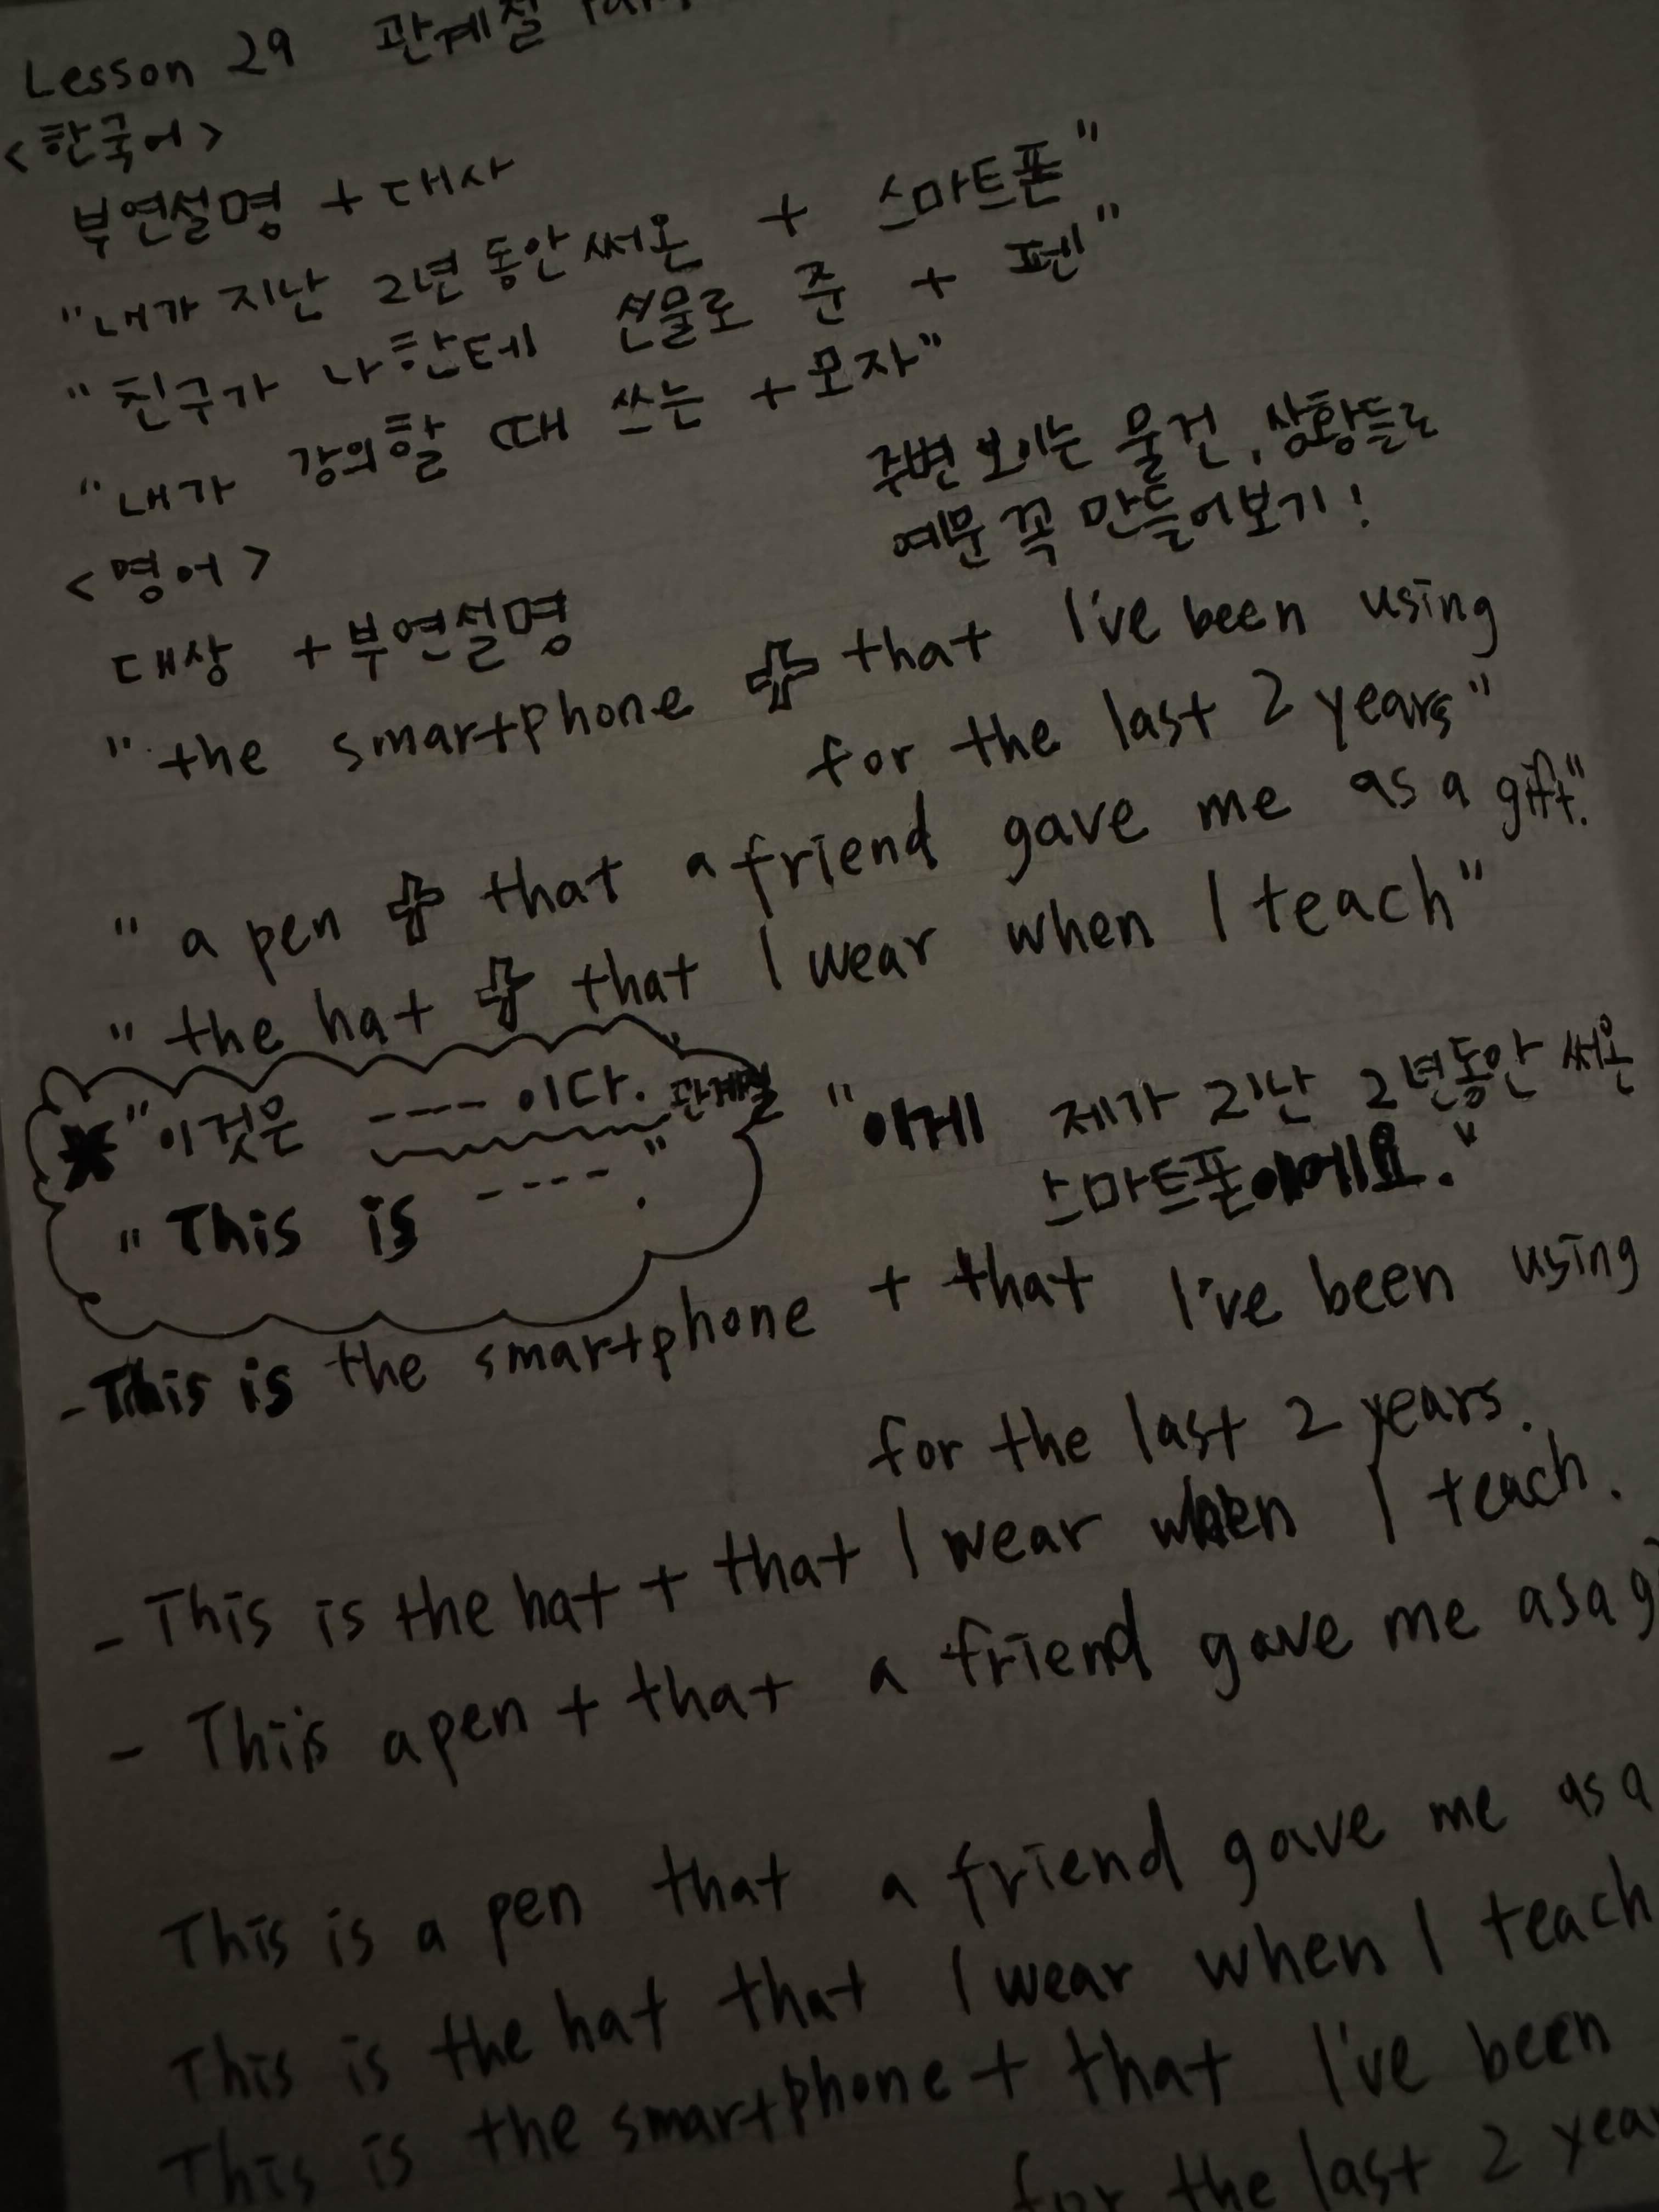 Lesson 29 관계절
<한국어>
부연설명 + 대사
"내가 지난 2년 동안 써온 + 스마트폰"
"친구가 나한테 선물로 준 + 펜"
"내가 강의할 때 쓰는 + 모자"
주변 보이는 물건, 상황들로
예문 꼭 만들어보기!
<영어>
대상 + 부연설명
"the smartphone + that I've been using
for the last 2 years"
"a pen + that a friend gave me as a gift."
"the hat + that I wear when I teach"
"이것은 ---- 이다. 관계절
"This is ----."
"이게 제가 지난 2년동안 써온
스마트폰이에요."
-This is the smartphone + that I've been using
for the last 2 years.
- This is the hat + that I wear when I teach.
- This is a pen + that a friend gave me as a g
This is a pen that a friend gave me as a
This is the hat that I wear when I teach
This is the smartphone + that I've been
for the last 2 year